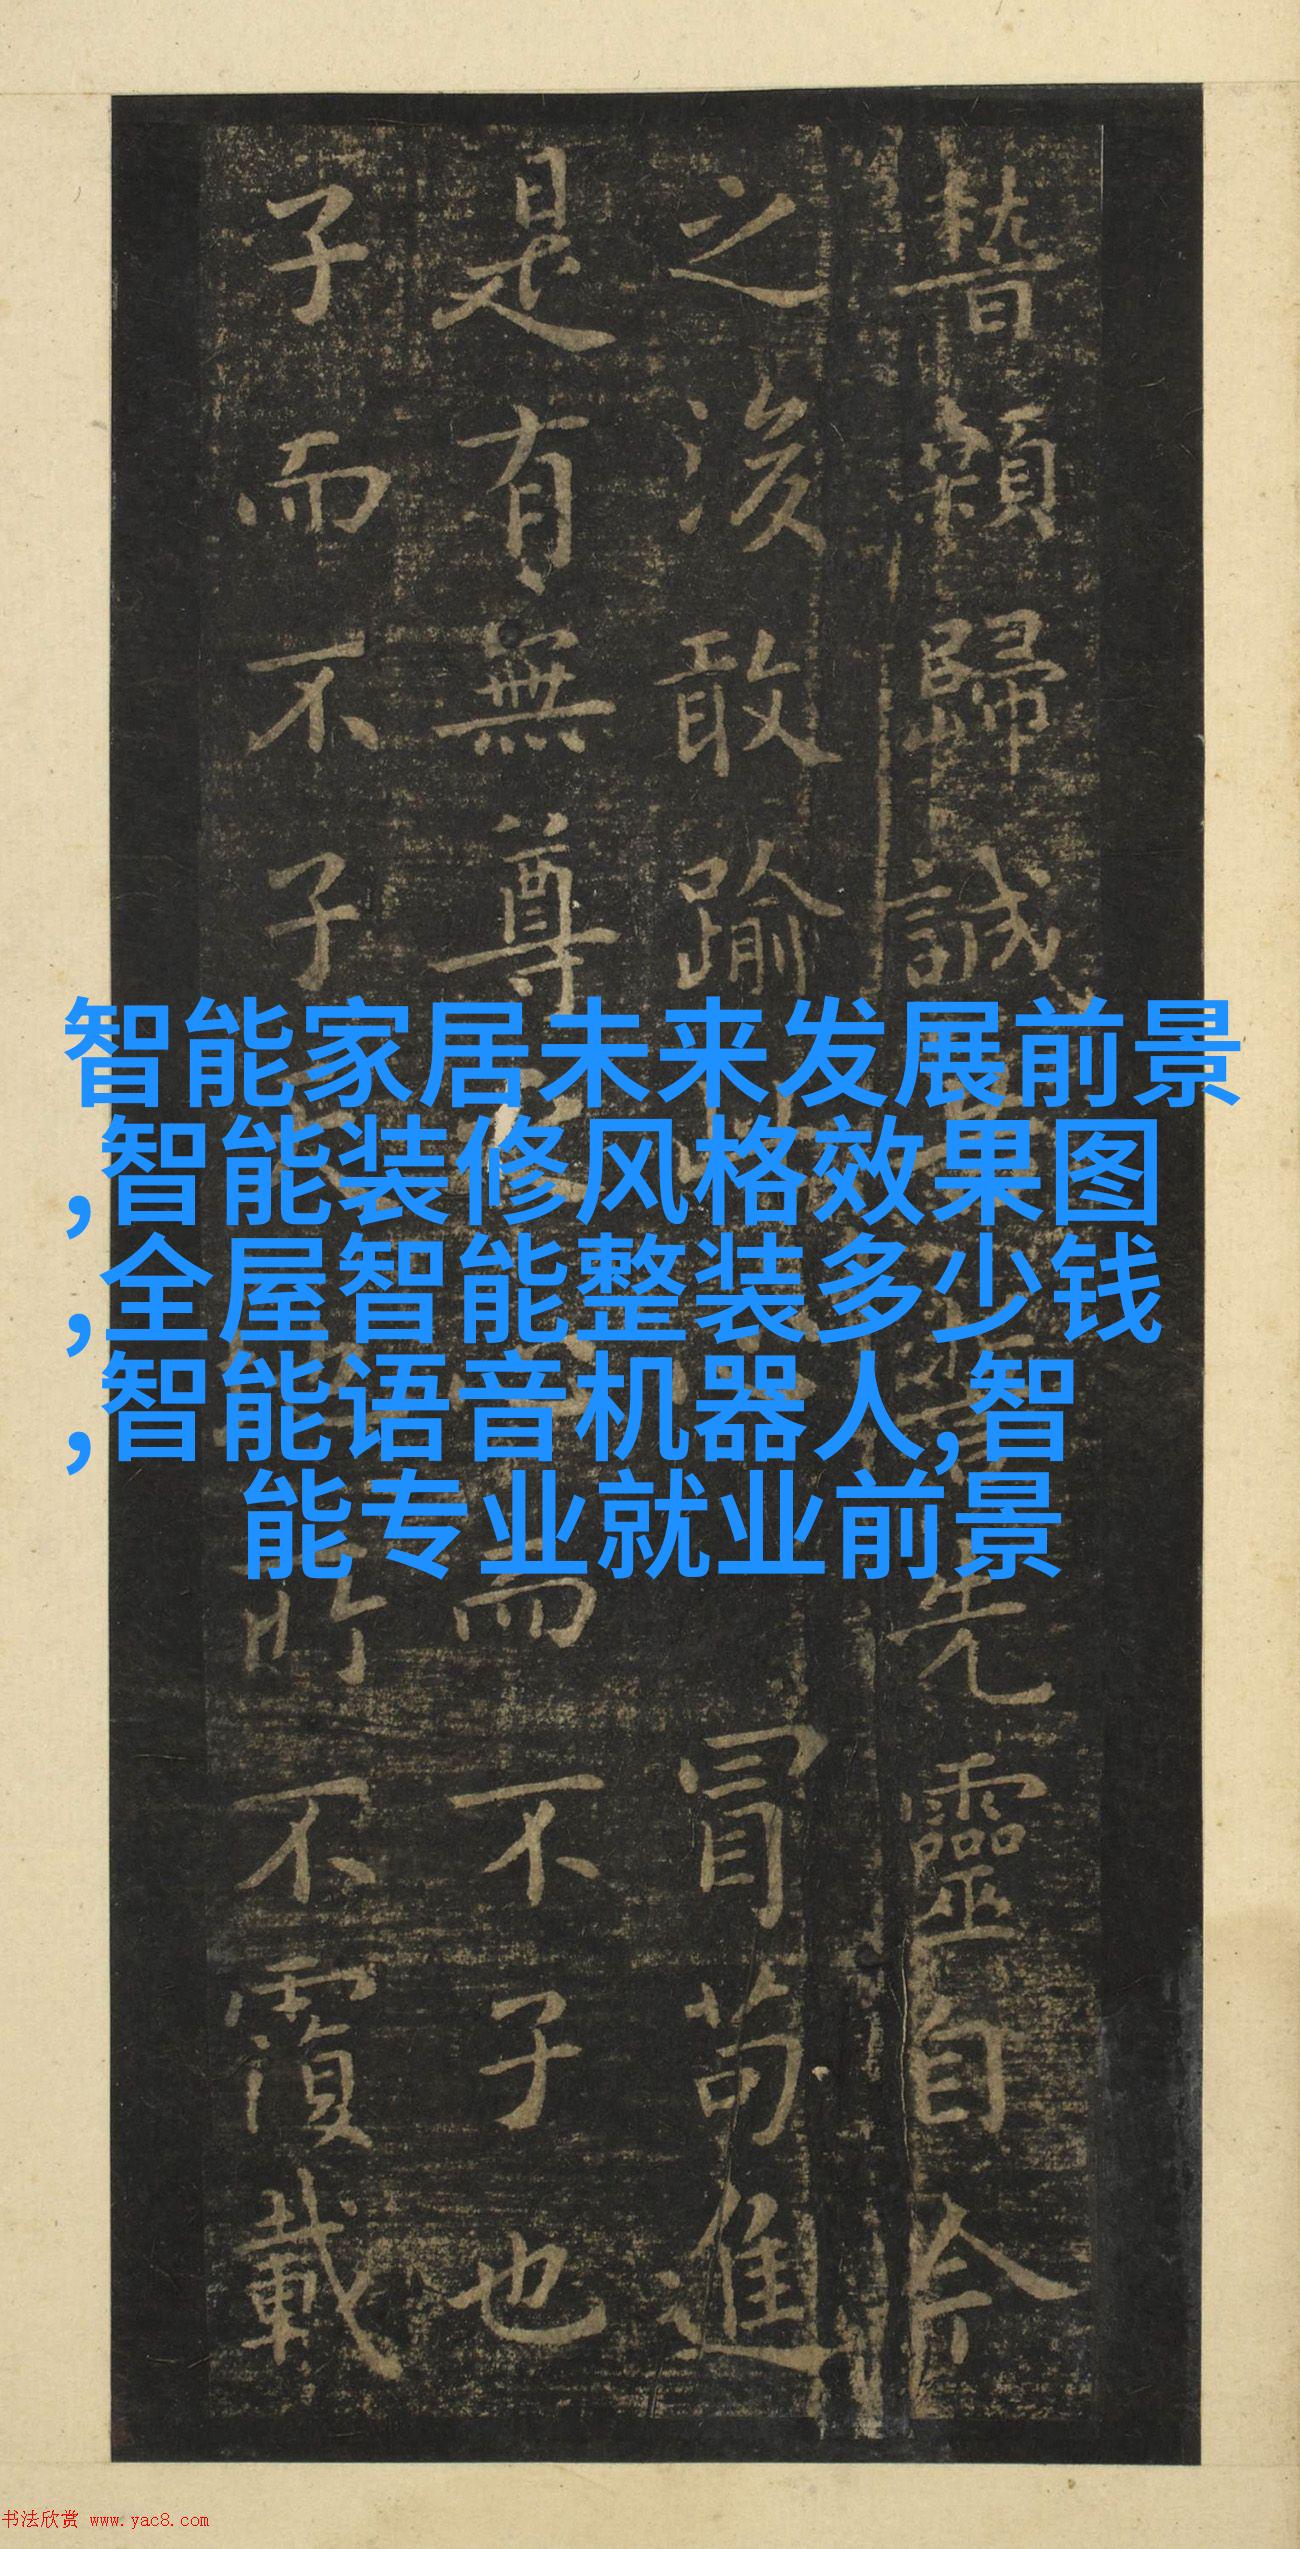 智能家居未来发展前景
,智能装修风格效果图
,全屋智能整装多少钱
,智能语音机器人,智
能专业就业前景
稽顙歸誠
先靈自今
之後敢踰
冒苟進
是有無尊
而不子也
子而不子
所不覆載
书法欣赏 www.yac8.com